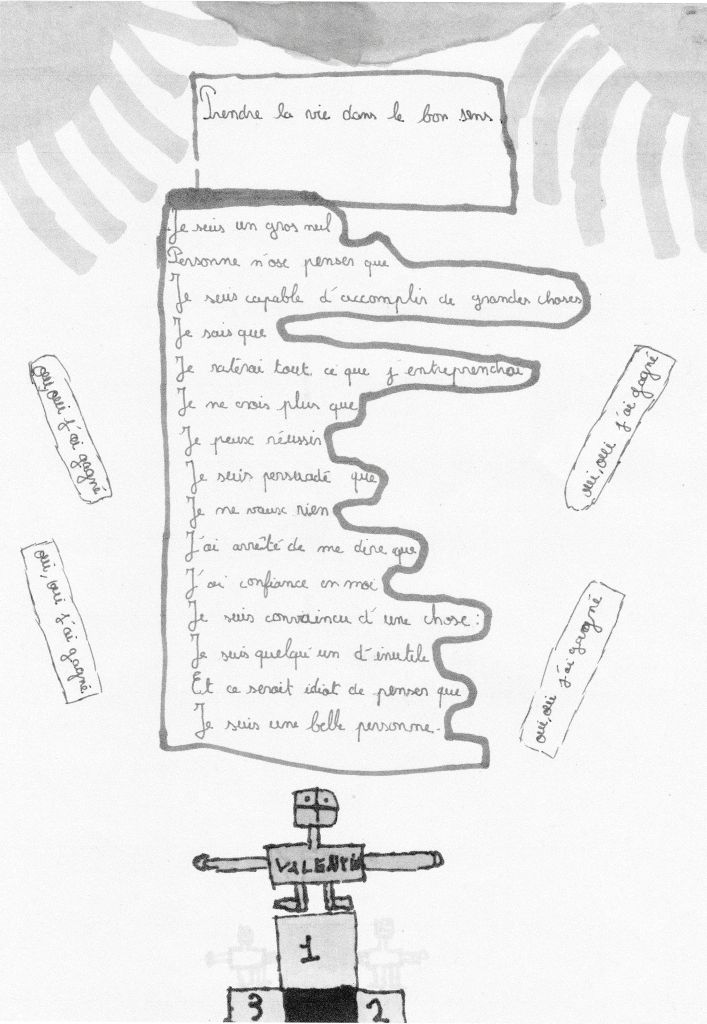 Prendre la vie dans le bon sens.
Je suis un gros nul
Personne n'ose penser que
Je suis capable d'accomplir de grandes choses
Je sais que
Je raterai tout ce que j'entreprendrai
Je ne crois plus que
Je peux réussir
Je suis persuadé que
Je ne vaux rien
J'ai arrêté de me dire que
J'ai confiance en moi
Je suis convaincu d'une chose :
Je suis quelqu'un d'inutile
Et ce serait idiot de penser que
Je suis une belle personne.
oui, oui j'ai gagné
oui, oui j'ai gagné
oui, oui j'ai gagné
oui, oui j'ai gagné
VALENTIN
1
3 2